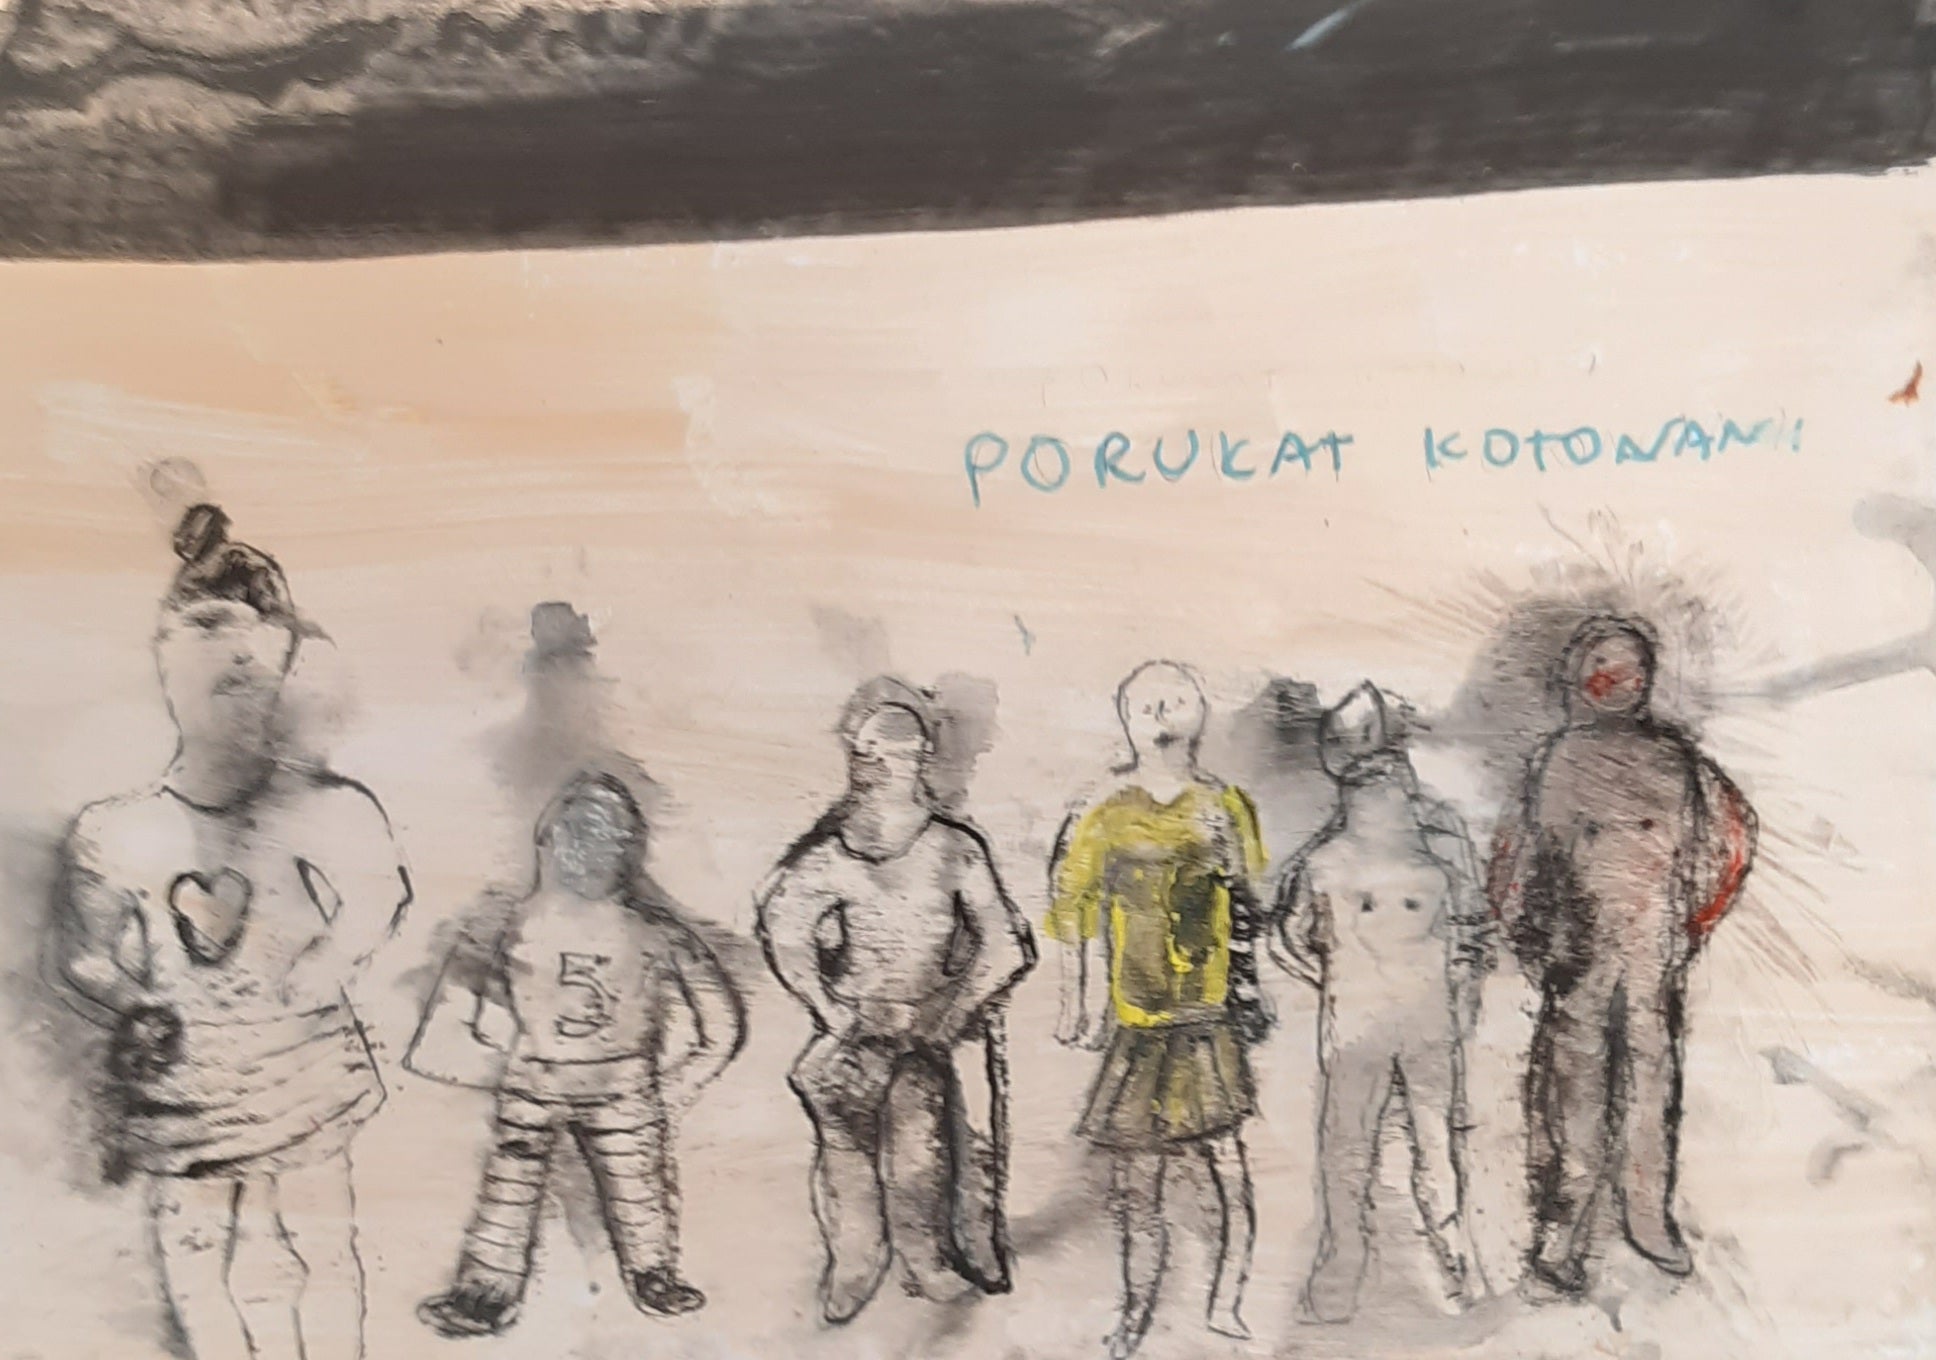 PORUKAT KOTONANI
5